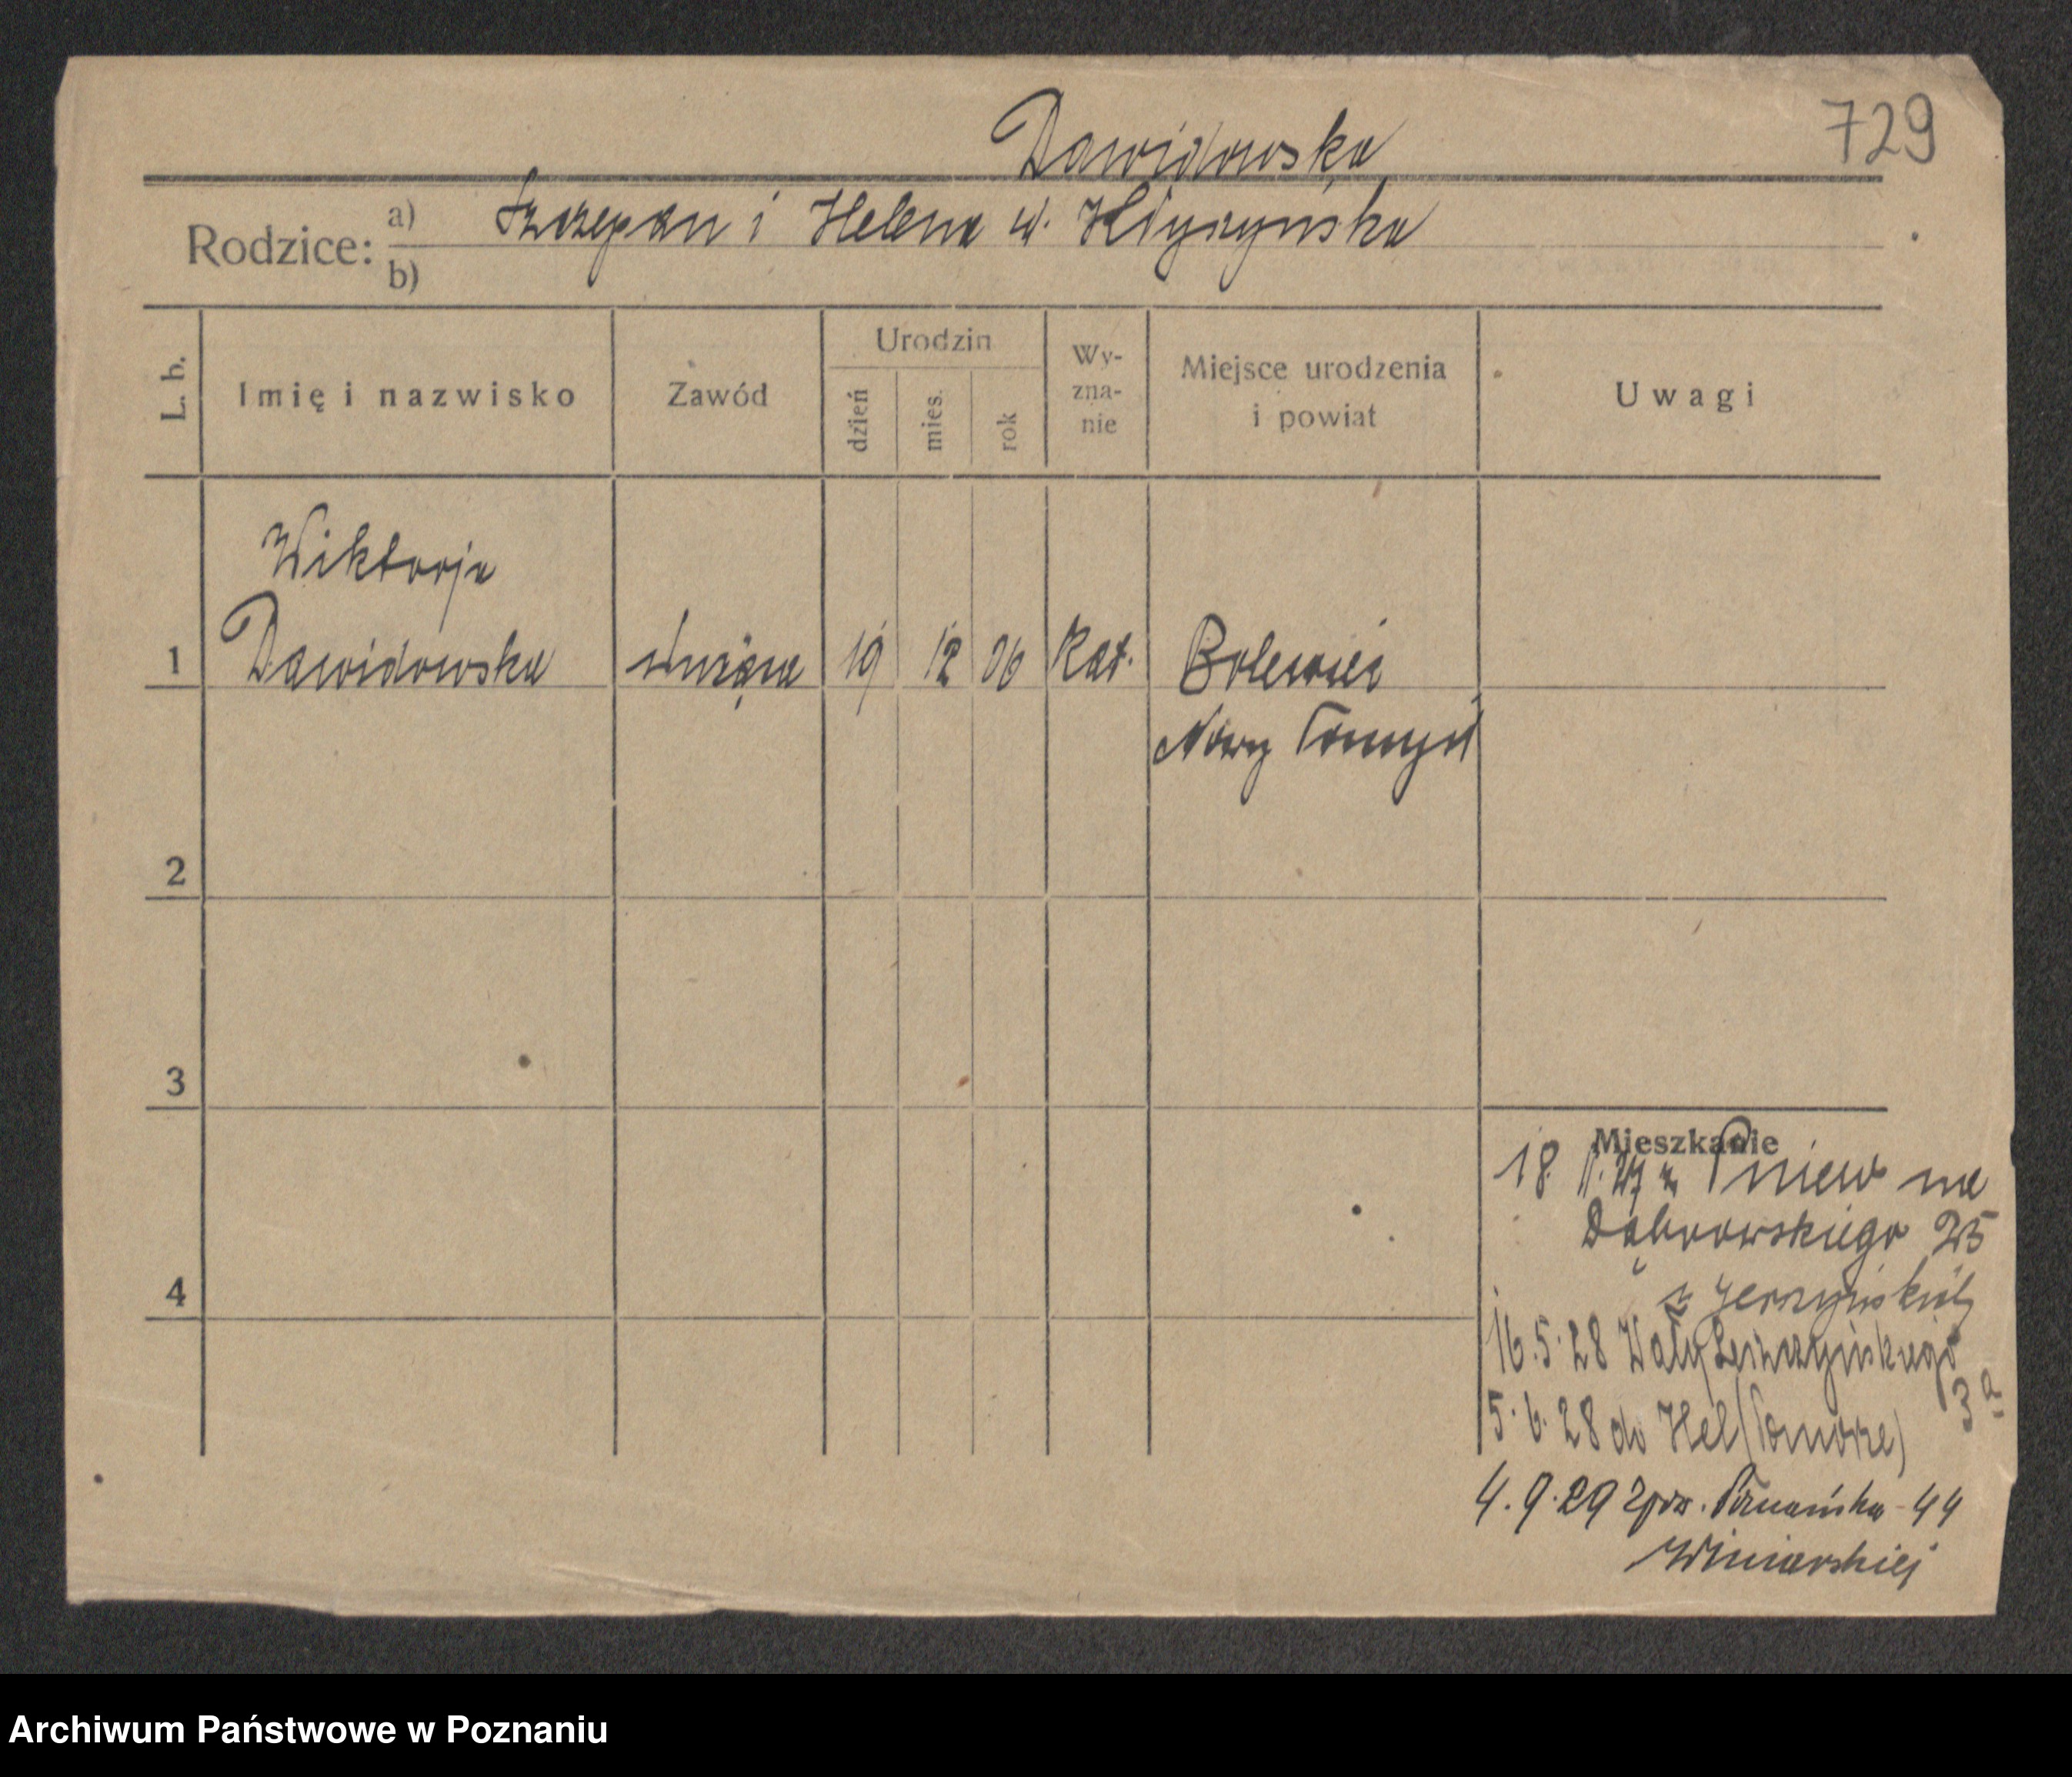 729
Dawidowska
Rodzice: a) Szczepan i Helena u. Kłyszyńska
b)
L. b. Imię i nazwisko Zawód Urodzin dzień mies. rok Wy-zna-nie Miejsce urodzenia i powiat Uwagi
Wiktorja
1 Dawidowska służąca 19 12 06 kat. Bolewice
Nowy Tomyśl
2
3
Mieszkanie
18. 27 z Pniew na
Dąbrowskiego 25
4
u Jerszyńskiej
16.5.28 Wały Leszczyńskiego
3a
5.6.28 do Hel (Pomorze)
4.9.29 Poznańska 44
Winiarskiej
Archiwum Państwowe w Poznaniu